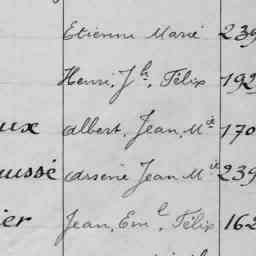 Etienne Marie 239
Henri, Jh, Félix 192
ux Albert, Jean, Mie 170
ussé Arsène Jean Mie 239
ier Jean, Eml, Félix 162